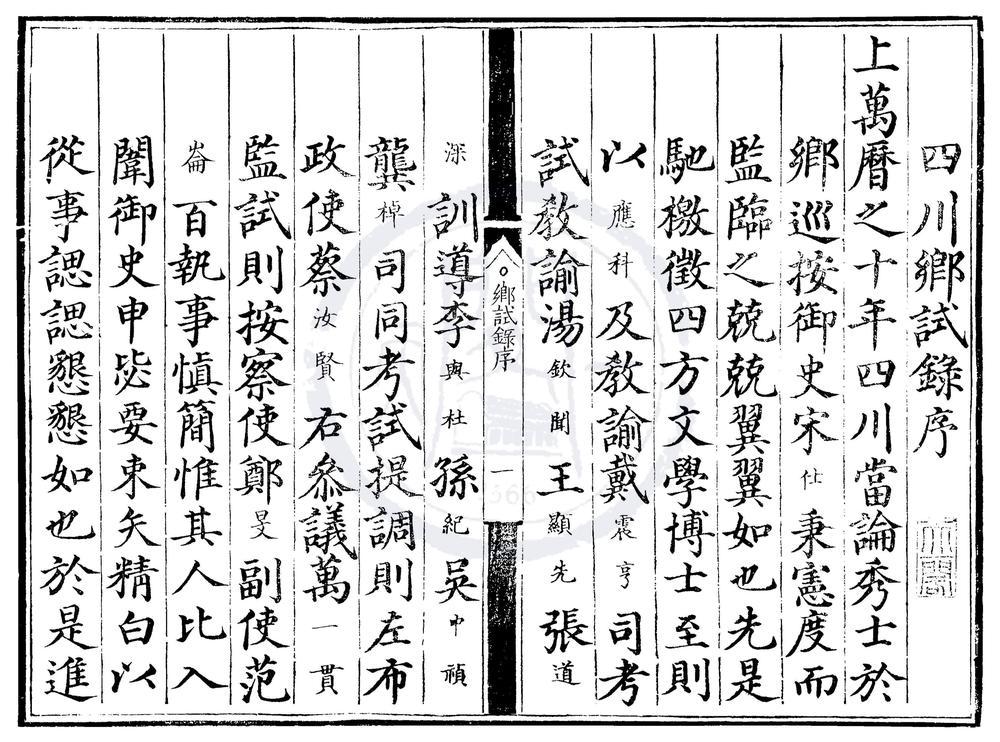 四川鄉試錄序
上萬曆之十年四川當論秀士於
鄉巡按御史宋仕秉憲度而
監臨之兢兢翼翼如也先是
馳檄徵四方文學博士至則
以應科及教諭戴震亨司考
試教諭湯欽聞王顯先張道
深訓導李與杜孫紀吳中禎
龔棹司同考試提調則左布
政使蔡汝賢右叅議萬一貫
監試則按察使鄭旻副使范
崙百執事慎簡惟其人比入
闈御史申毖要束矢精白以
從事諰諰懇懇如也於是進
鄉試錄序
一